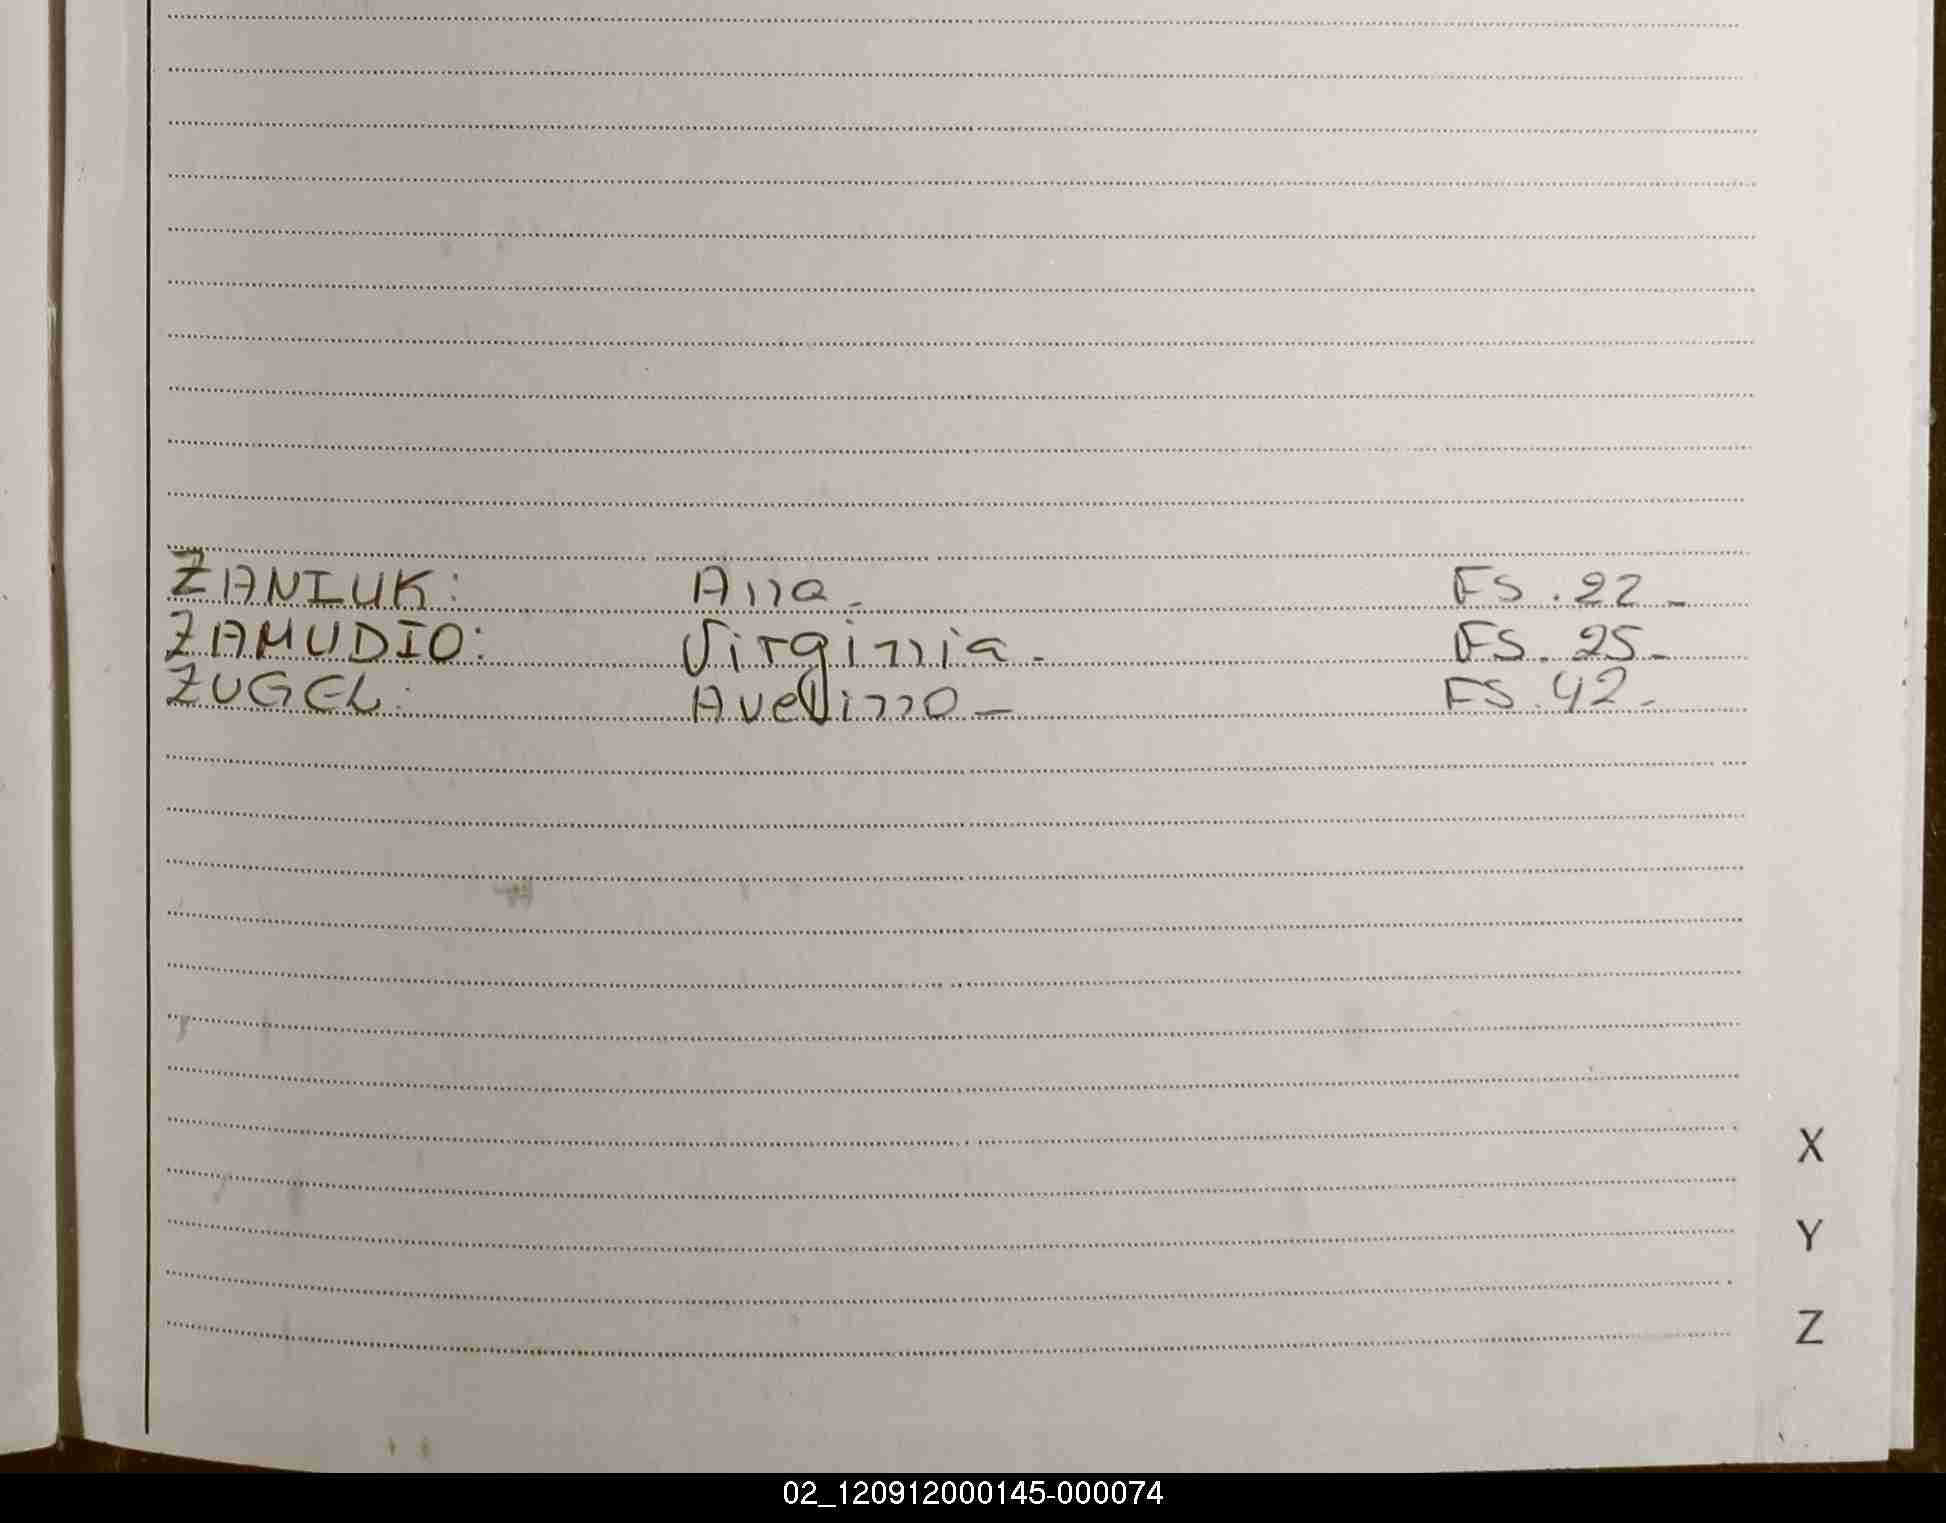 ZANIUK: Ana. FS. 22_
ZAMUDIO: Virginia. FS. 25_
ZUGEL: Avelino_ FS. 42_
X
Y
Z
02_120912000145-000074